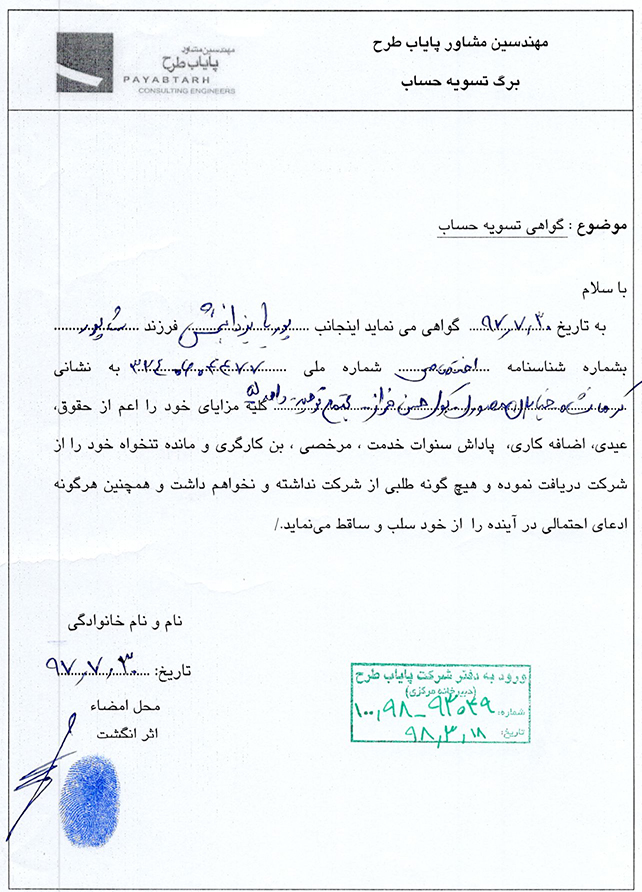 مهندسین مشاور پایاب طرح
برگ تسویه حساب
مهندسین مشاور
پایاب طرح
PAYABTARH
CONSULTING ENGINEERS
موضوع : گواهی تسویه حساب
با سلام
به تاریخ ۹۷,۷,۳۰ گواهی می نماید اینجانب پوریا یزدانبخش فرزند شاپور
بشماره شناسنامه اختصاصی شماره ملی به نشانی
کرمانشاه خیابان کلیه مزایای خود را اعم از حقوق،
عیدی، اضافه کاری، پاداش سنوات خدمت ، مرخصی ، بن کارگری و مانده تنخواه خود را از
شرکت دریافت نموده و هیچ گونه طلبی از شرکت نداشته و نخواهم داشت و همچنین هرگونه
ادعای احتمالی در آینده را از خود سلب و ساقط می‌نماید./
نام و نام خانوادگی
تاریخ: ۹۷,۷,۳۰
محل امضاء
اثر انگشت
ورود به دفتر شرکت پایاب طرح
(دبیرخانه مرکزی)
شماره: ۱۰۰,۹۸_۹۳۰۳۹
تاریخ: ۹۸,۳,۱۸